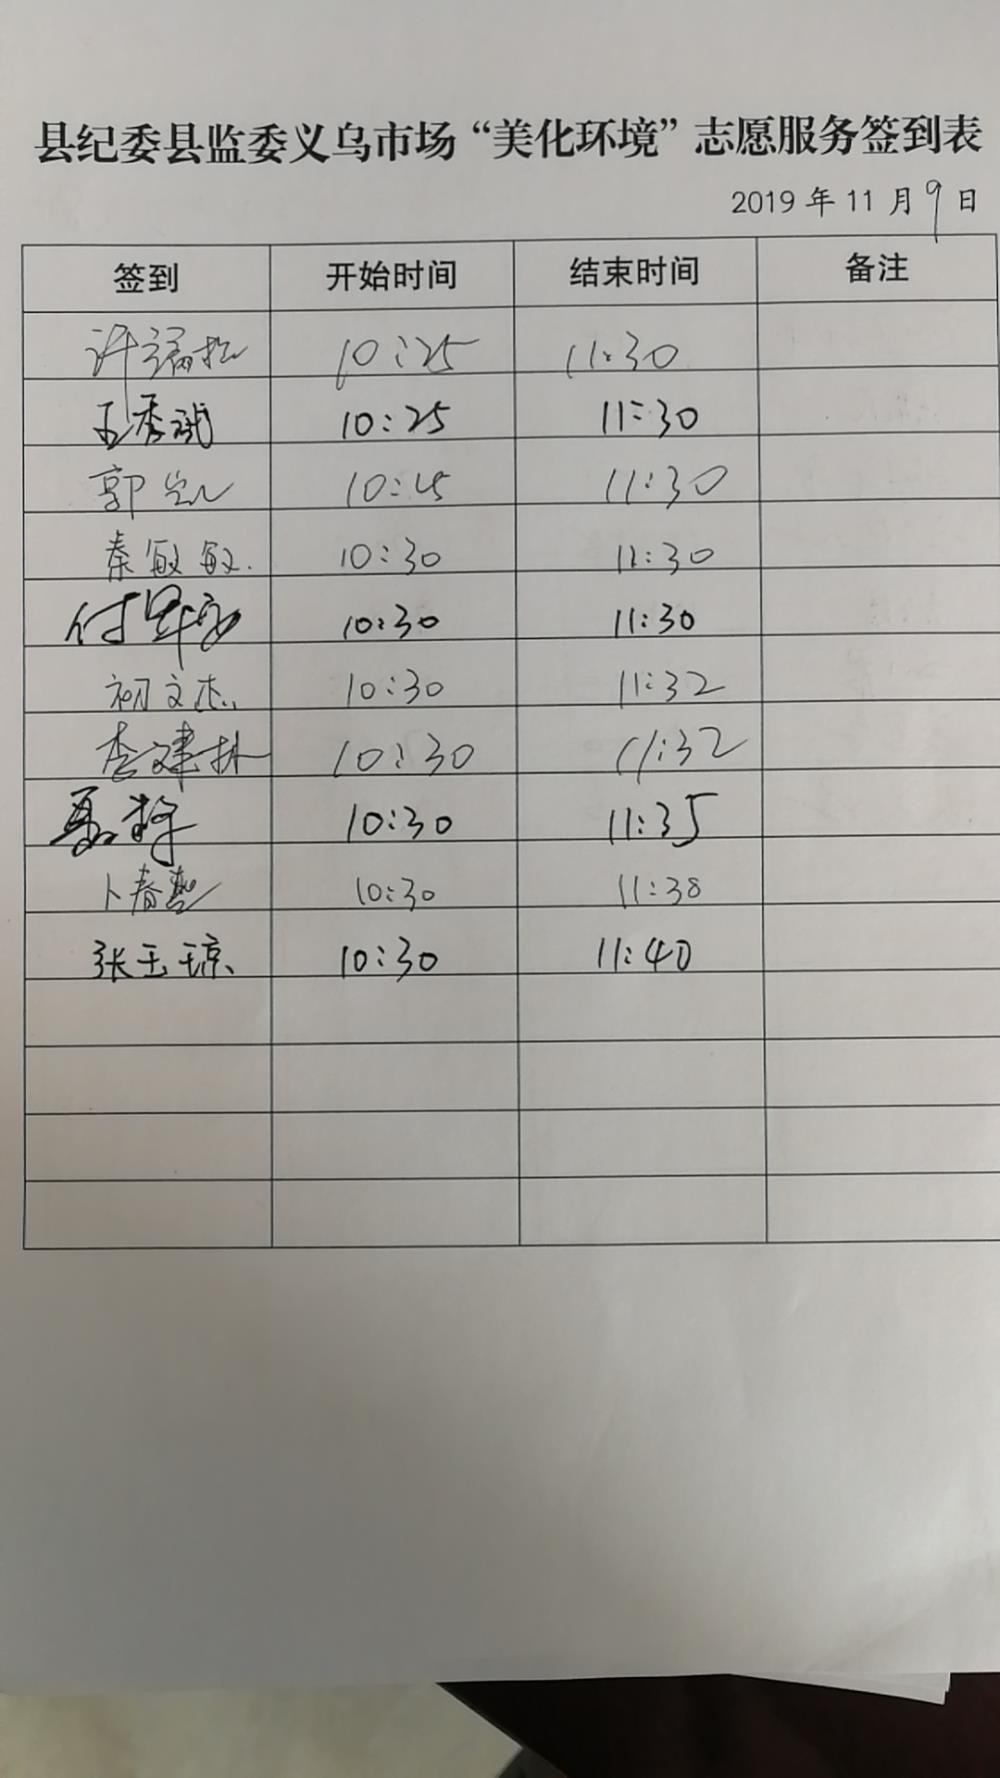 县纪委县监委义乌市场“美化环境”志愿服务签到表
2019年11月9日
签到 开始时间 结束时间 备注
许 10:25 11:30
王秀斌 10:25 11:30
郭 10:25 11:30
秦敏敏 10:30 11:30
付 10:30 11:30
初文杰 10:30 11:32
李建林 10:30 11:32
聂梓 10:30 11:35
卜春慧 10:30 11:38
张玉琼 10:30 11:40